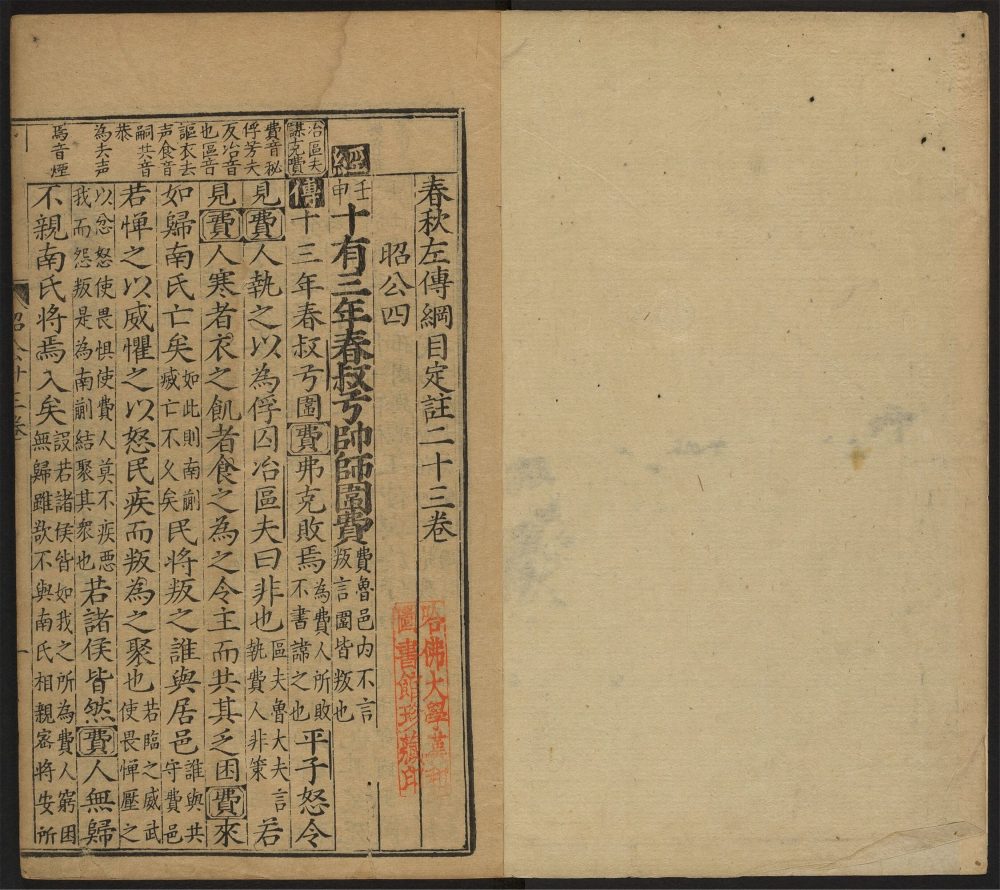 春秋左傳綱目定註二十三卷
昭公四
經
壬申
十有三年春叔弓帥師圍費
費魯邑内不言
叛言圍皆叛也
傳
十三年春叔弓圍費弗克敗焉
為費人所敗
不書諱之也
平子怒令
見費人執之以為俘囚冶區夫曰非也
區夫魯大夫言
執費人非策
若
見費人寒者衣之飢者食之為之令主而共其乏困費來
如歸南氏亡矣
如此則南蒯
烕亡不久矣
民將叛之誰與居邑
誰與共
守費邑
若憚之以威懼之以怒民疾而叛為之聚也
若臨之威武
使畏憚壓之
以忿怒使畏惧使費人莫不疾惡
我而怨叛是為南蒯結聚其衆也
若諸侯皆然費人無歸
不親南氏将焉入矣
設若諸侯皆如我之所為費人窮困
無歸雖欲不與南氏相親宻将安所
冶區夫
謀克費
費音秘
俘芳夫
反冶音
也區音
謳衣去
声食音
嗣共音
恭
為去声
焉音煙
哈佛大學漢和
圖書館珍藏印